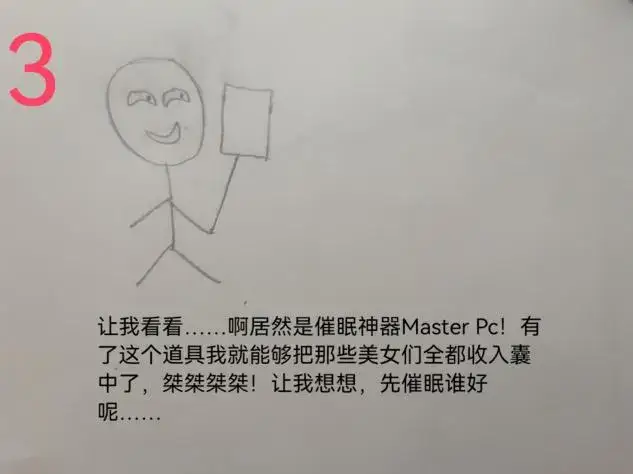 3
让我看看……啊居然是催眠神器Master Pc！有
了这个道具我就能够把那些美女们全都收入囊
中了，桀桀桀桀！让我想想，先催眠谁好
呢……